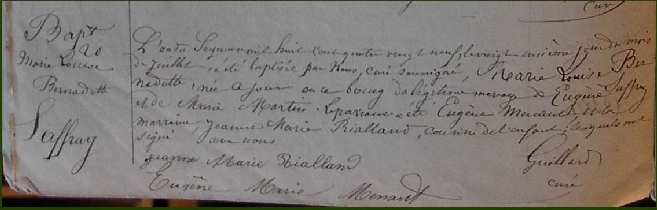 Bapt
20
Marie Louise
Bernadette
Saffray
L'an du Seigneur mil huit cent quatre vingt neuf, le vingt unième jour du mois
de Juillet, a été baptisée par nous, curé soussigné, Marie Louise Ber
nadette, née à jour en ce bourg du légitime mariage de Eugène Saffray
et de Marie Martin. Le parrain a été Eugène Menaut, et la
marraine, Jeanne Marie Rialland, cousine de l'enfant, lesquels ont
signé avec nous
Jeanne Marie Rialland
Guillard
curé
Eugène Marie Menaut